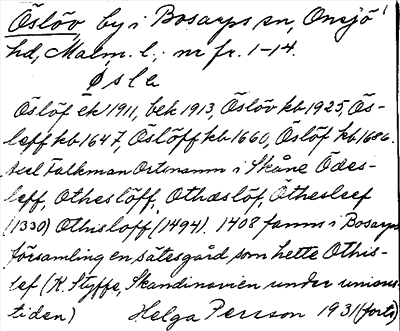 Öslöv, by i Bosarps sn, Onsjö
hd, Malm. l.; nr fr. 1-14.
Øsle
Öslöf ek 1911, bek 1913, Öslöv kb 1925, Ös-
leff kb 1647, Oslöff kb 1660, Öslöf kb 1686.
Axel Falkman Ortsnamn i Skåne Ödes-
leff, Otheslöff, Othæslöf, Øthesleef
(1330) Othislöff, (1494). 1408 fanns i Bosarps
församling en sätesgård som hette Othis-
lef (K. Styffe, Skandinavien under unions-
tiden) Helga Persson 1931 (forts)